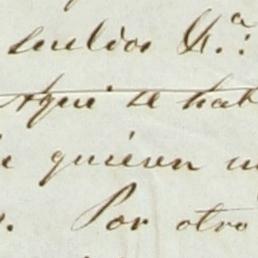 sueldos &.ª:
Aqui se hat
e quieren u
. Por otro